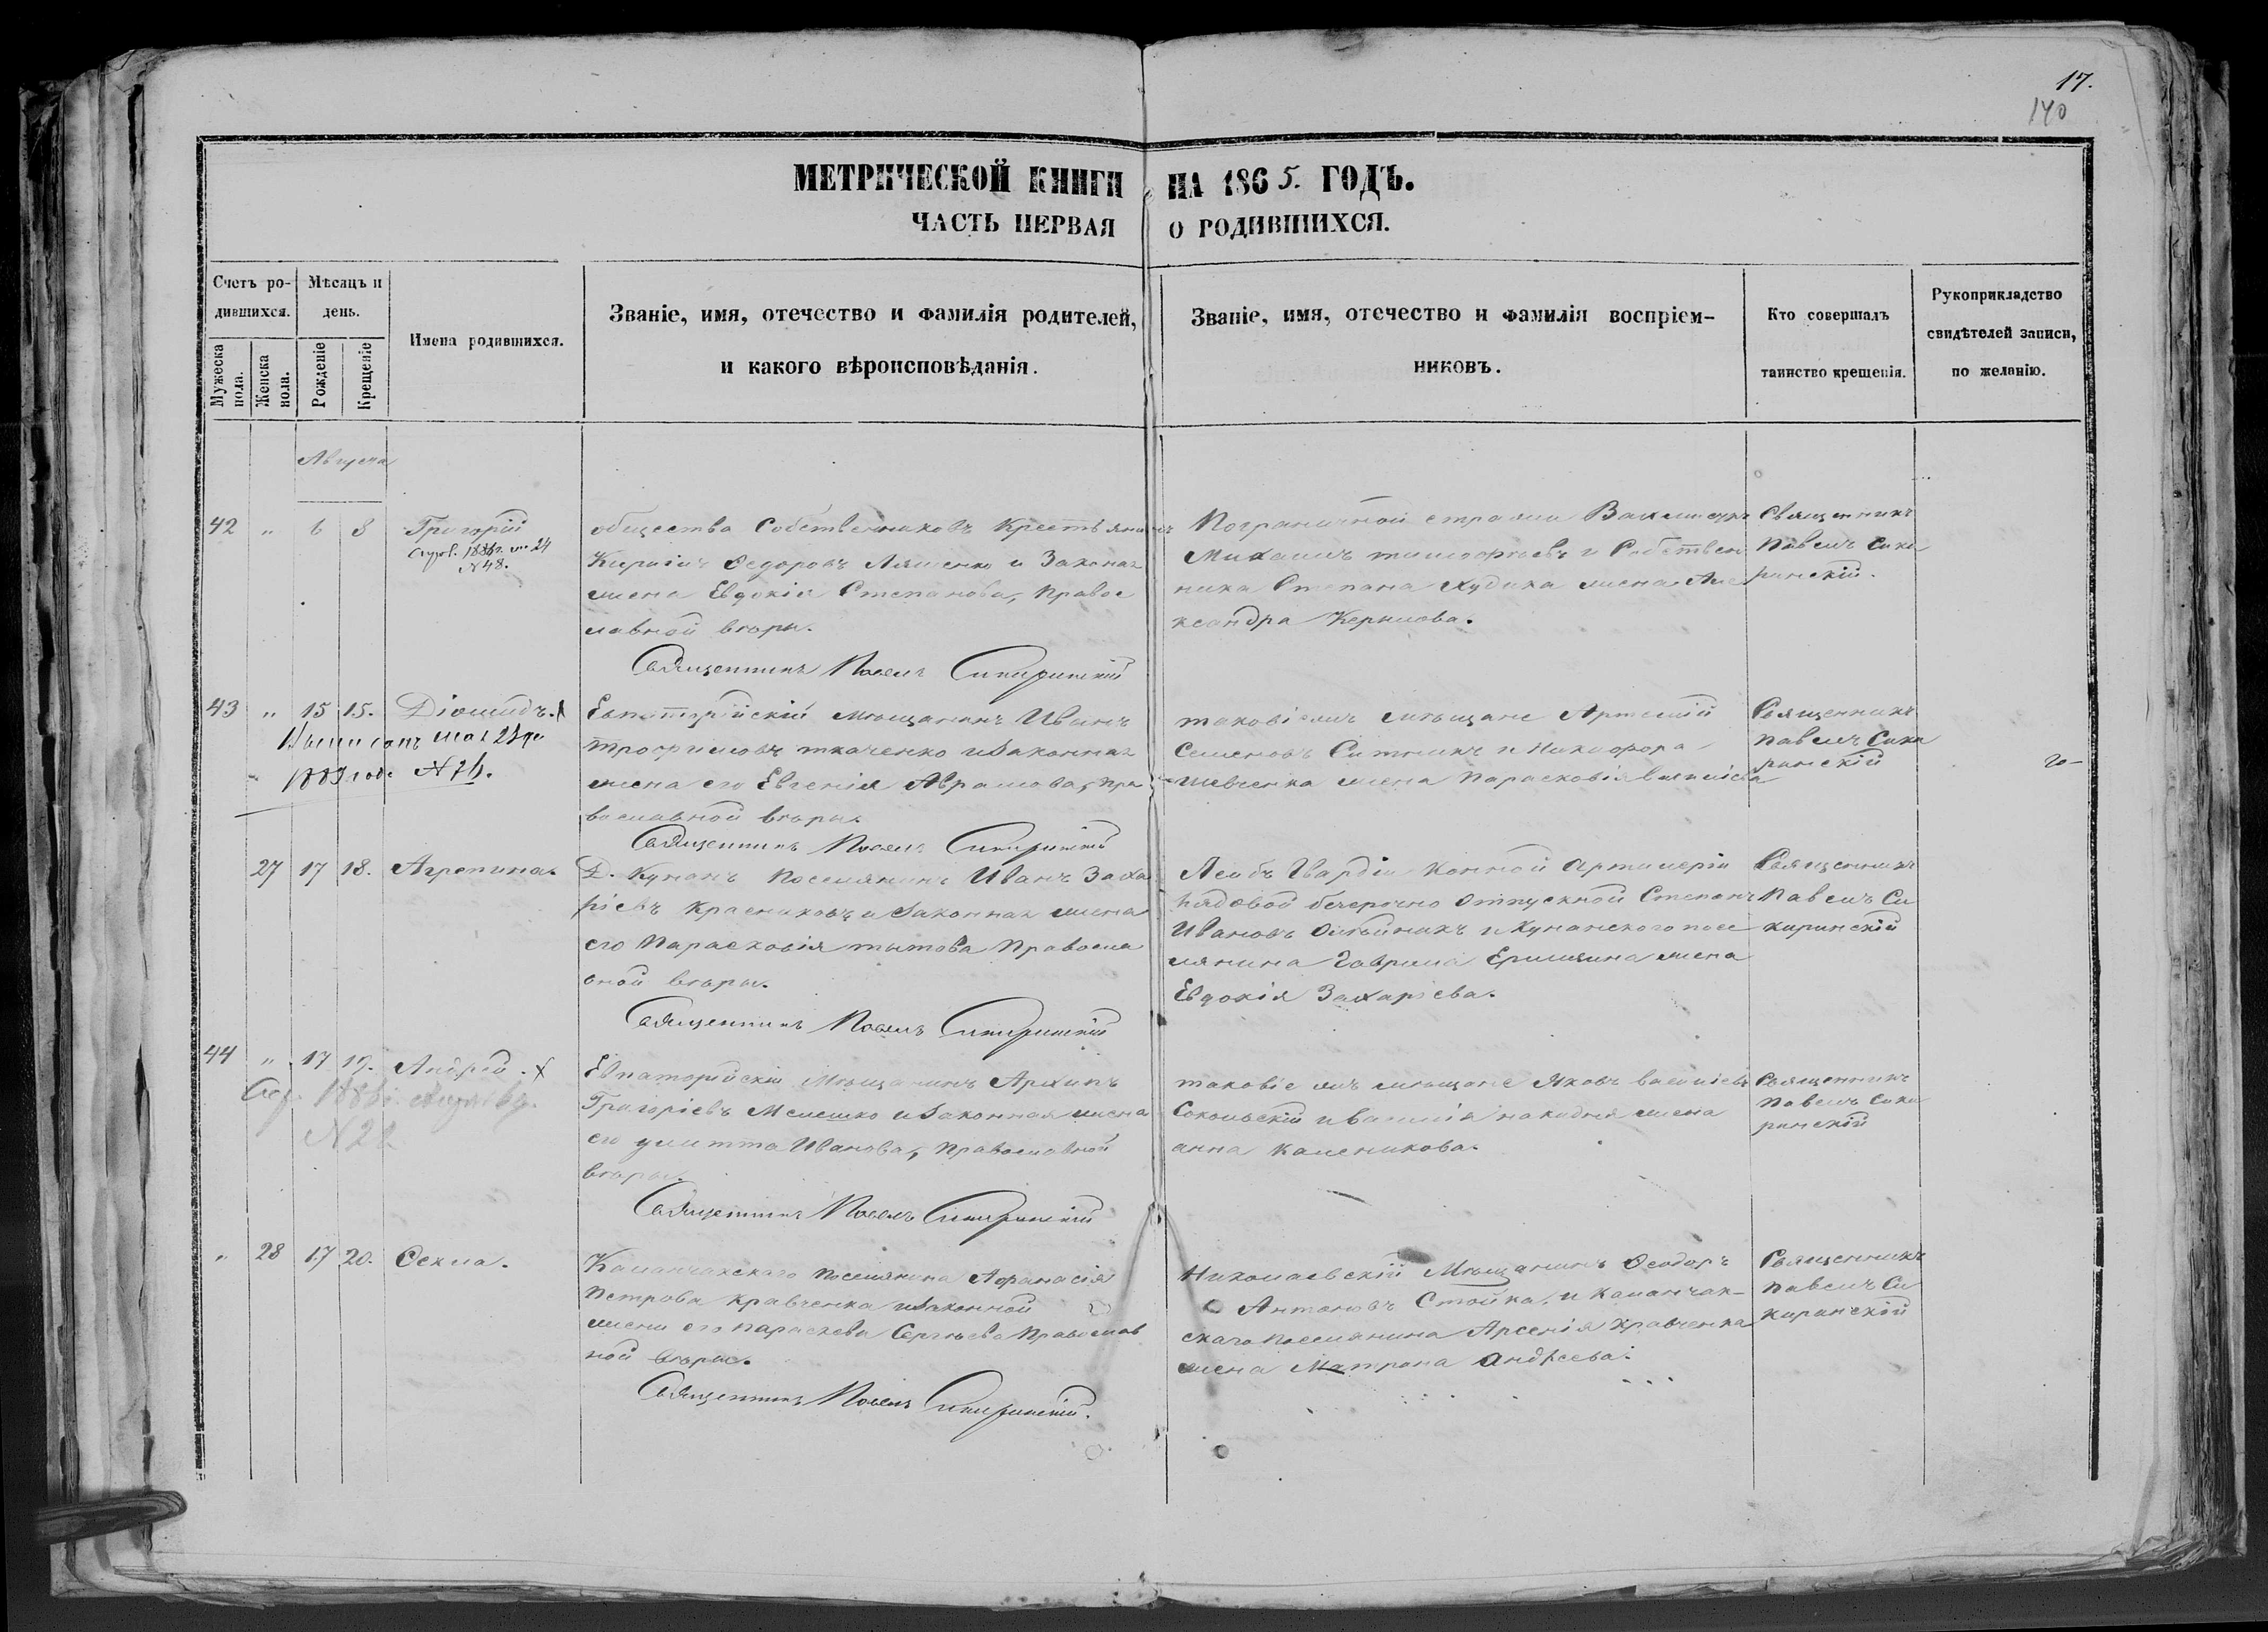 17.
140
МЕТРИЧЕСКОЙ КНИГИ НА 1865. ГОДЪ.
ЧАСТЬ ПЕРВАЯ О РОДИВШИХСЯ.
Счетъ ро-
дившихся.
Мужеска
пола.
Женска
пола.
Мѣсяцъ и
день.
Рожденіе
Крещеніе
Имена родившихся.
Званіе, имя, отечество и фамилія родителей,
и какого вѣроисповѣданія.
Званіе, имя, отечество и фамилія воспріем-
никовъ.
Кто совершалъ
таинство крещенія.
Рукоприкладство
свидѣтелей записи,
по желанію.
Августа
42 " 6 8 Григорій
N 48.
общества Собственниковъ Крестьянинъ
Ѳедоровъ Ляшенко и Законная
жена Евдокія Степанова, Правос
лавной вѣры.
Священникъ Павелъ Сикиринскій
Пограничной стражи
Михаилъ Тимоѳѣевъ и Собствен
ника Степана Худика жена Але
ксандра
Священникъ
Павелъ Сики
ринскій.
43 " 15 15. Діомидъ.
N 76.
Евпаторійскій мѣщанинъ Иванъ
Трофимовъ ткаченко и Законная
жена его Евгенія Аврамова, Пра
вославной вѣры.
Священникъ Павелъ Сикиринскій
таковіежъ мѣщане Артемій
Семеновъ Ситникъ и Никифора
Шевченка жена Парасковія
Священникъ
Павелъ Сики
ринскій
27 17 18. Агрепина.
Д. Куманъ Поселянинъ Иванъ Заха
ріевъ Красниковъ и Законная жена
его Парасковія титова Правосла
вной вѣры.
Священникъ Павелъ Сикиринскій
Лейбъ Гвардіи Конной Артилеріи
рядовой безсрочно Отпускной Степанъ
Ивановъ Олѣйникъ и Куманского посе
лянина Гаврила жена
Евдокія Захаріева.
Священникъ
Павелъ Си
киринскій
44 " 17 19. Андрей.
N 22
Евпаторійскій Мѣщанинъ Архипъ
Григоріевъ Мелешко и Законная жена
его Иванова, Православной
вѣры.
Священникъ Павелъ Сикиринскій
таковіежъ мѣщане Яковъ
Сокольскій и жена
анна
Священникъ
Павелъ Сики
ринскій
" 28 17 20. Ѳекла.
Каланчакскаго поселянина Афанасія
Петрова Кравченка и Законной
жены его Параскевы Сергѣева Православ
ной вѣры.
Священникъ Павелъ Сикиринскій.
Николаевскій Мѣщанинъ Ѳеодоръ
Антоновъ Стойка, и Каланчак-
скаго поселянина Арсенія Кравченка
жена Матрона Андрѣева.
Священникъ
Павелъ Си
киринскій